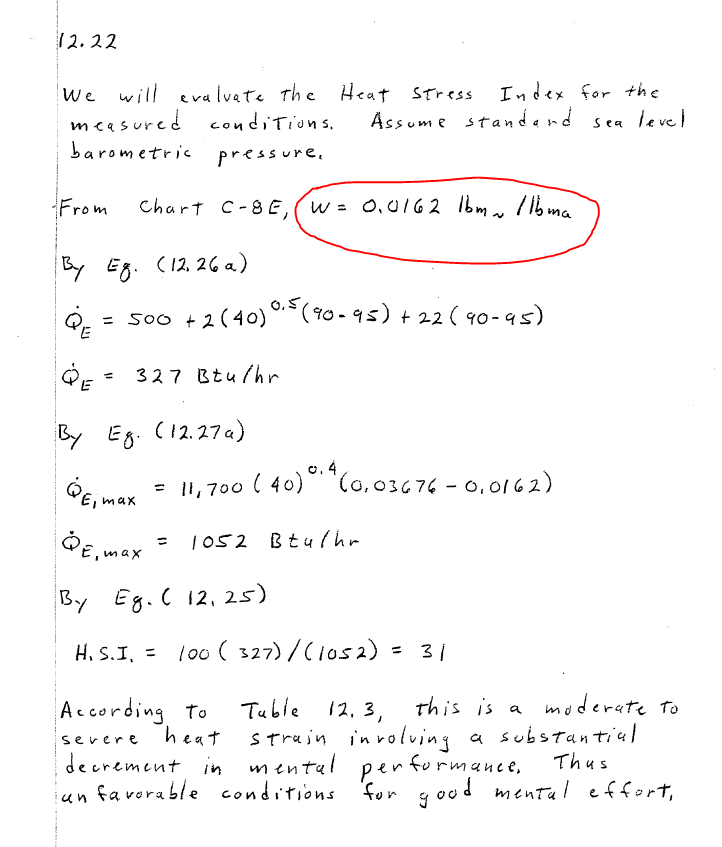 12.22
We will evaluate the Heat Stress Index for the
measured conditions. Assume standard sea level
barometric pressure.
From Chart C-8E, W = 0.0162 lbmw/lbma
By Eq. (12.26a)
Q̇E = 500 + 2(40)^0.5(90-95) + 22(90-95)
Q̇E = 327 Btu/hr
By Eq. (12.27a)
Q̇E,max = 11,700(40)^0.4(0.03676 - 0.0162)
Q̇E,max = 1052 Btu/hr
By Eq. (12.25)
H.S.I. = 100(327)/(1052) = 31
According to Table 12.3, this is a moderate to
severe heat strain involving a substantial
decrement in mental performance. Thus
unfavorable conditions for good mental effort.